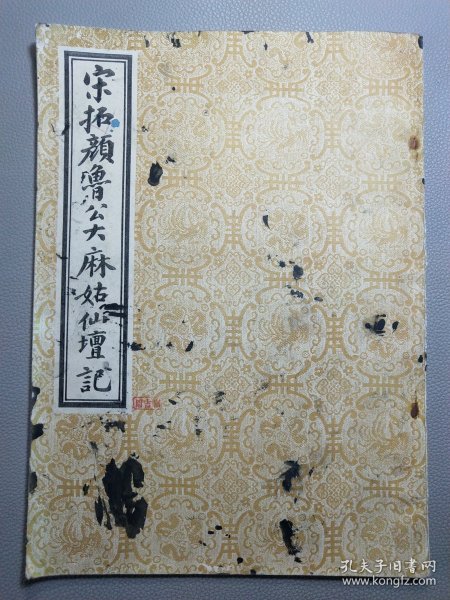 宋拓顏魯公大麻姑仙壇記
孔夫子旧书网
www.kongfz.com